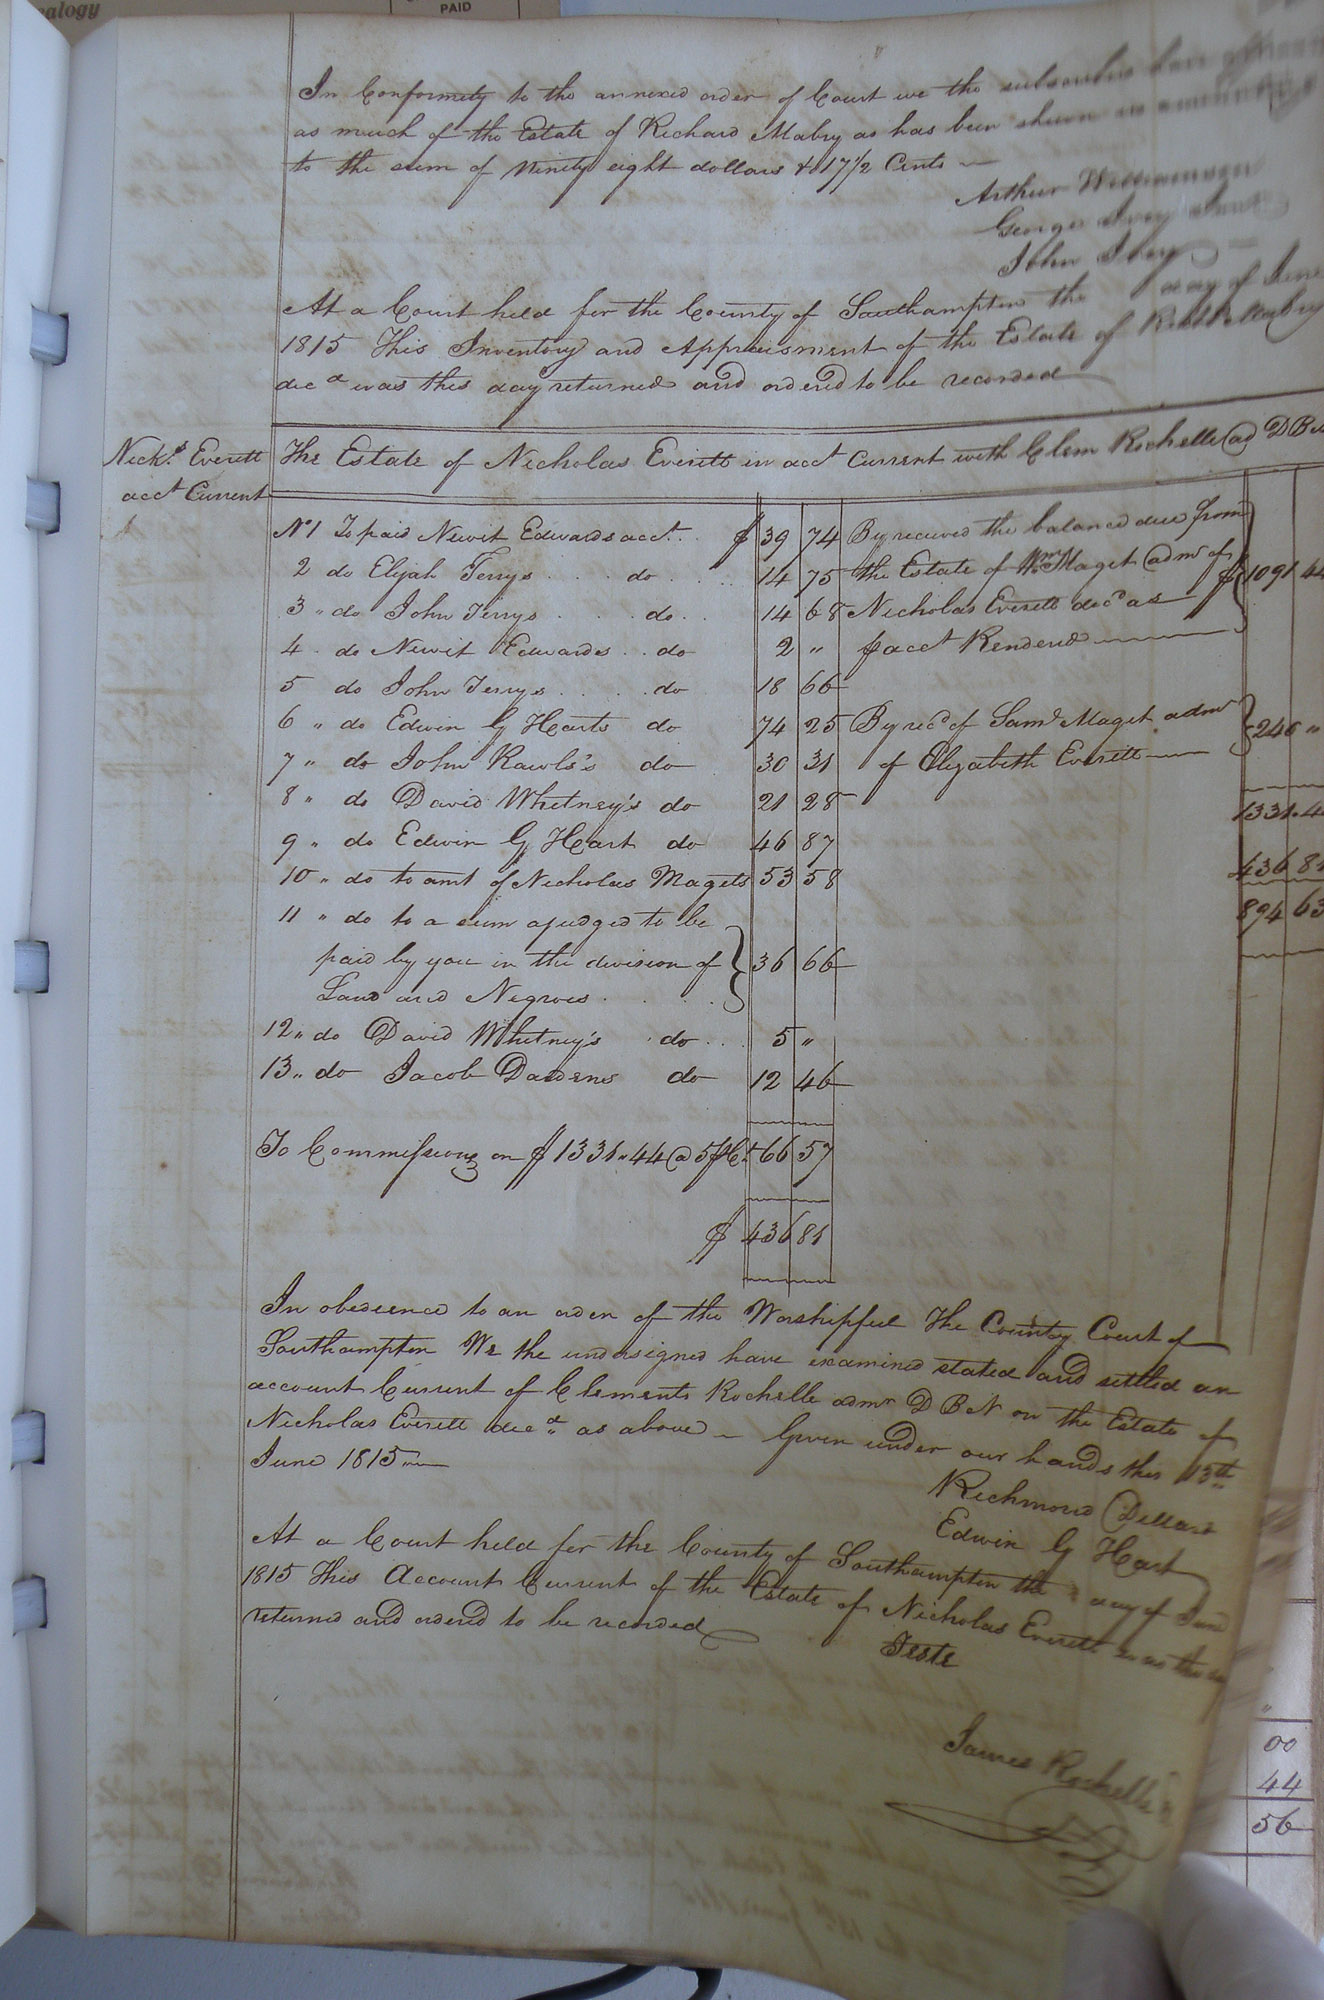 alogy
PAID
In Conformity to the annexed order of Court we the subscribers have
as much of the Estate of Richard Mabry as has been shewn
to the sum of Ninety eight dollars & 17 1/2 Cents
Arthur Williamson
George Ivey
John Ivey
At a Court held for the County of Southampton the day of June
1815 This Inventory and Appraisment of the Estate of Mabry
decd was this day returned and ordered to be recorded
Nichs. Everett
acct Current
The Estate of Nicholas Everett in acct Current with Clem Rochelle ad D B
No 1 To paid Newit Edwards acct. $ 39 74 By received the balance due from
2 do Elijah Terrys do 14 75 the Estate of Wm Maget admr of $ 1091 44
3 " do John Terrys do 14 68 Nicholas Everett decd as
4 do Newit Edwards do 2 " p acct Rendered
5 do John Terrys do 18 66
6 " do Edwin G Harts do 74 25 By recd of Saml Maget admr 240 "
7 " do John Rawls's do 30 31 of Elizabeth Everett
8 " do David Whitney's do 21 28 1331.4
9 " do Edwin G Hart do 46 87
10 " do to amt of Nicholas Magets 53 58 436 81
11 " do to a sum ajudged to be 894 63
paid by you in the division of 36 66
Land and Negroes
12 " do David Whitney's do 5 "
13 " do Jacob Dardens do 12 46
To Commissions on $ 1331.44 @ 5 p Ct 66 57
$ 436 81
In obedience to an order of the Worshipful The County Court of
Southampton We the undersigned have examined stated and settled an
account Current of Clements Rochelle admr D B N on the Estate of
Nicholas Everett decd as above Given under our hands this 13th
June 1815
Richmond Dillard
Edwin G Hart
At a Court held for the County of Southampton the day of June
1815 This Account Current of the Estate of Nicholas Everett was this
returned and ordered to be recorded
Teste
James Rochelle
00
44
56